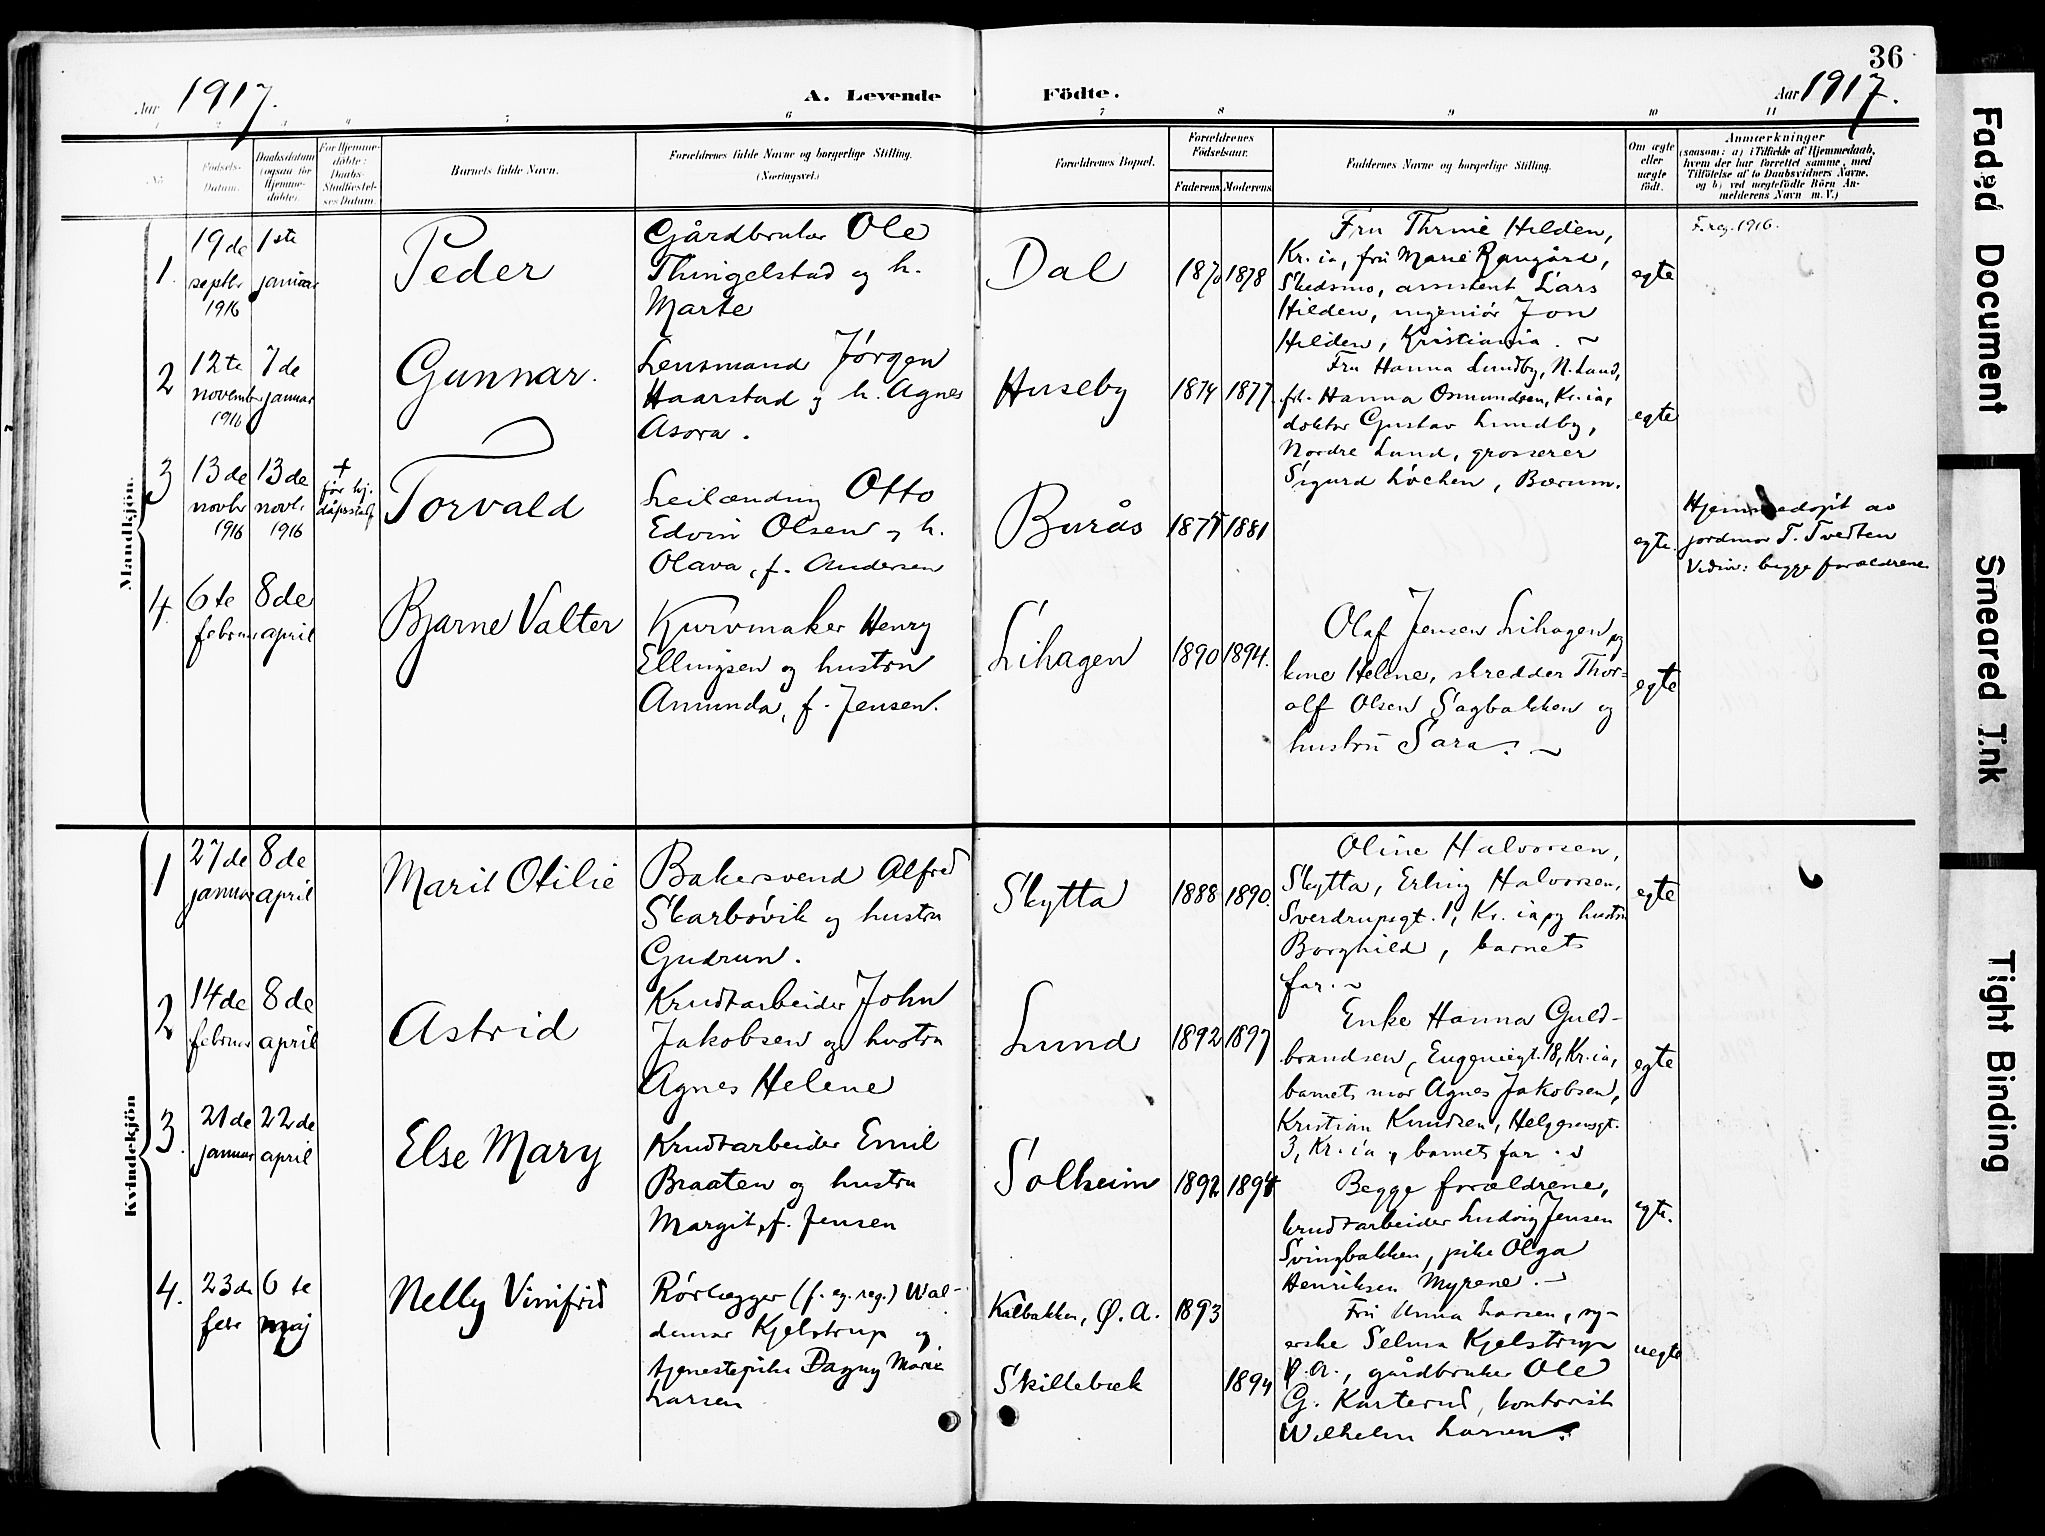 36
Aar 1917.
A. Levende Födte.
Aar 1917.
1 2 3 4 5 6 7 8 9 10 11
No
Fødsels-
Datum.
Daabsdatum
(ogsaa for
Hjemme-
døbte).
For Hjemme-
døbte:
Daabs-
Stadfæstel-
ses Datum.
Barnets fulde Navn.
Forældrenes fulde Navne og borgerlige Stilling.
(Næringsvei.)
Forældrenes Bopæl.
Forældrenes
Fødselsaar.
Faderens Moderens
Faddernes Navne og borgerlige Stilling.
Om ægte
eller
uægte
født.
Anmærkninger
(saasom: a) i Tilfælde af Hjemmedaab,
hvem der har forrettet samme, med
Tilføielse af to Daabsvidners Navne,
og b) ved uægtefødte Börn An-
melderens Navn m. V.)
Mandkjön.
1.
19de
septbr
1916
1ste
januar
Peder
Gårdbruker Ole
Thingelstad og h.
Marte
Dal
1870 1878
Fru Thrine Hilden,
Kr.ia, fru Marie Rangård,
Skedsmo, assistent Lars
Hilden, ingeniør Jon
Hilden, Kristiania.
egte
F. reg. 1916.
2
12te
novembr
1916
7de
januar
Gunnar.
Lensmand Jørgen
Haarstad og h. Agnes
Asora.
Huseby
1874 1877.
Fru Hanna Lundby, N. Lund,
frk. Hanna Osmundsen, Kr.ia,
doktor Gustav Lundby,
Nordre Lund, grosserer
Sigurd Løchen, Bærum.
egte
3
13de
novbr
1916
13de
novbr.
1916
+
før hj.
dåpsstadf
Torvald
Leilænding Otto
Edvin Olsen og h.
Olava, f. Andersen
Burås
1875 1881
egte.
Hjemmedøpt av
jordmor T. Tvedten
Vidner: begge forældrene
4.
6te
februar
8de
april
Bjarne Valter
Kurvmaker Henry
Ellingsen og hustru
Amunda, f. Jensen.
Lihagen
1890 1894.
Olaf Jensen Lihagen og
kone Helene, skredder Thor-
olf Olsen Sagbakken og
hustru Sara.
egte
Kvindekjön
1
27de
januar
8de
april
Marit Otilie
Bakersvend Alfred
Skarbøvik og hustru
Gudrun.
Skytta
1888 1890.
Oline Halvorsen,
Skytta, Erling Halvorsen,
Sverdrupsgt. 1, Kr.ia og hustru
Borghild, barnets
far.
egte
2
14de
februar
8de
april
Astrid
Krudtarbeider John
Jakobsen og hustru
Agnes Helene
Lund
1892 1897
Enke Hanna Guld-
brandsen, Eugeniegt. 18, Kr.ia,
barnets mor Agnes Jakobsen,
Kristian Knudsen, Helgesensgt.
3, Kr.ia, barnets far.
egte
3.
21de
januar
22de
april
Else Mary
Krudtarbeider Emil
Braaten og hustru
Margit, f. Jensen
Solheim
1892 1894
Begge forældrene,
krudtarbeider Ludvig Jensen
Svingbakken, pike Olga
Henriksen Myrene.
egte.
4.
23de
febr
6te
maj
Nelly Vinifrid
Rørlægger (f. eg. reg.) Wal-
demar Kjelstrup og
tjenestepike Dagny Marie
Larsen
Kalbakken, Ø. A.
Skillebæk
1893
1894
Fru Anna Larsen, sy-
erske Selma Kjelstrup
Ø. A., gårdbruker Ole
G. Karterud, kontorist
Wilhelm Larsen.
uegte
Faded Document
Smeared Ink
Tight Binding